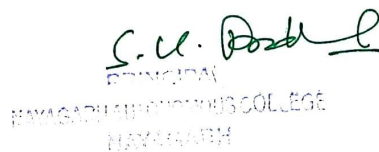 S.K.
PRINCIPAL
NAYAGARH AUTONOMOUS COLLEGE
NAYAGARH